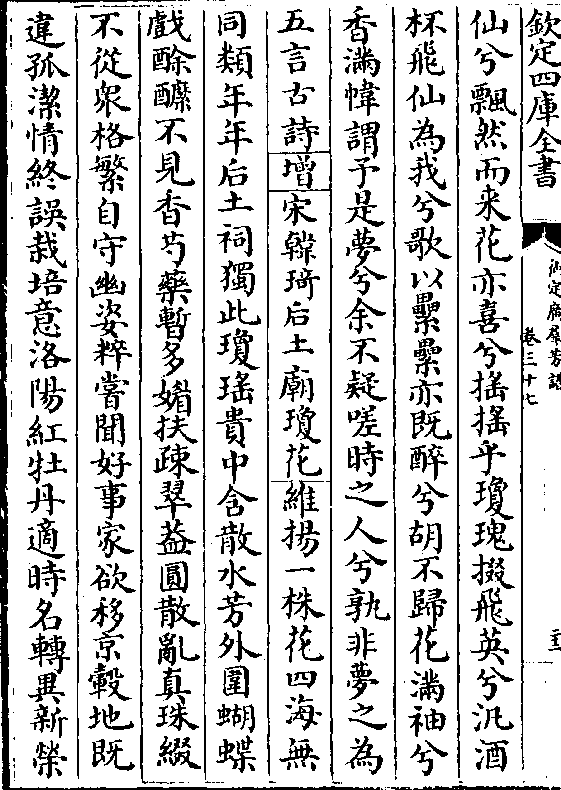 欽定四庫全書
御定廣羣芳譜
卷三十七
仙兮飄然而来花亦喜兮揺揺乎瓊瑰掇飛英兮汎酒
杯飛仙為我兮歌以纍纍亦既醉兮胡不歸花滿袖兮
香滿幃謂予是夢兮余不疑嗟時之人兮孰非夢之為
五言古詩增宋韓琦后土廟瓊花維揚一株花四海無
同類年年后土祠獨此瓊瑤貴中含散水芳外圍蝴蝶
戲酴醿不見香芍藥暫多媚扶疎翠葢圓散亂真珠綴
不從衆格繁自守幽姿粹嘗聞好事家欲移京轂地既
違孤潔情終誤栽培意洛陽紅牡丹適時名轉異新榮